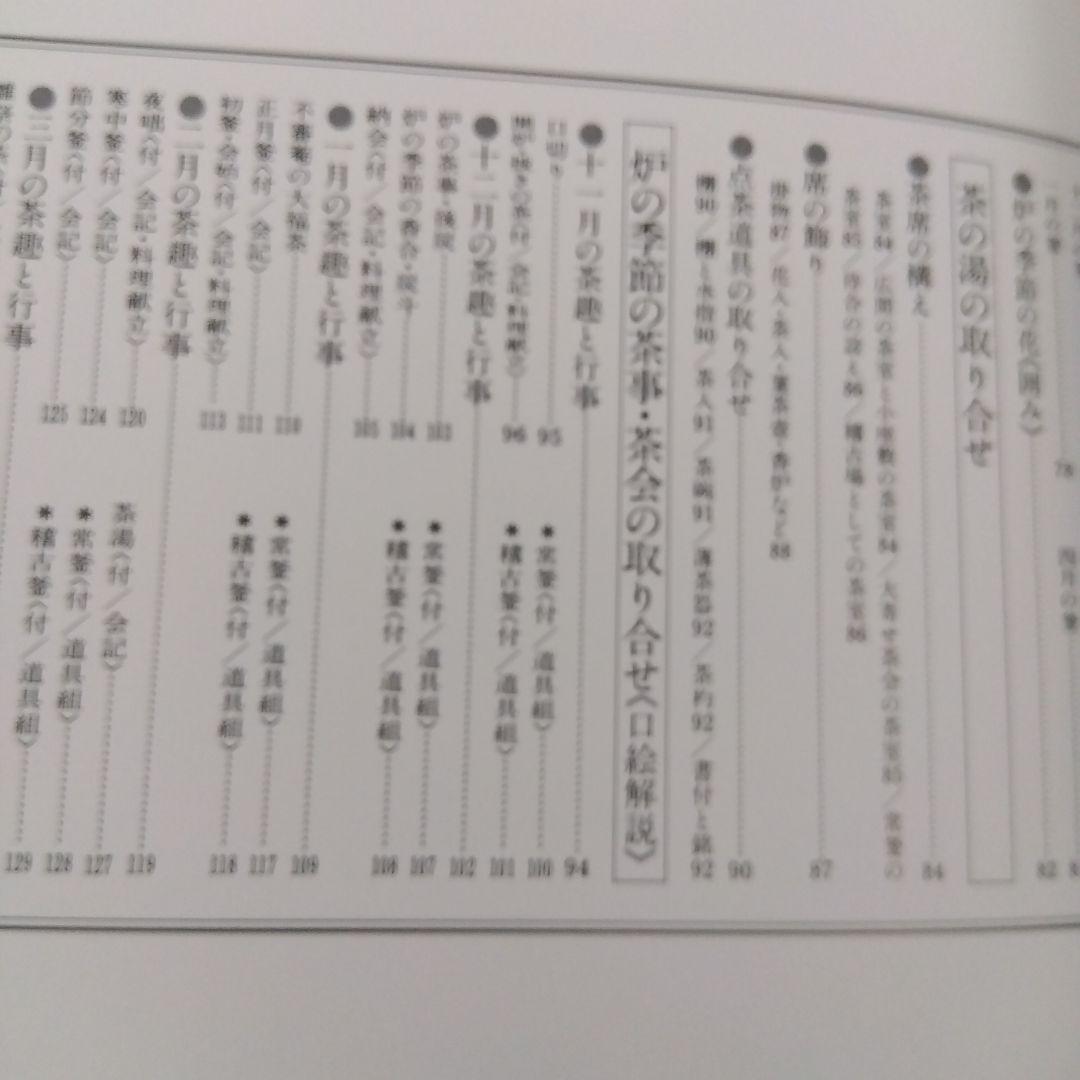 一月の菓
78
四月の菓
82
●炉の季節の花〈囲み〉
茶の湯の取り合せ
●茶席の構え 84
茶室84／広間の茶室と小座敷の茶室84／大寄せ茶会の茶室85／常釜の
茶室85／待合の設え86／稽古場としての茶室86
●席の飾り 87
掛物87／花入・茶入・葉茶壺・香炉など88
●点茶道具の取り合せ 90
棚90／棚と水指90／茶入91／茶碗91／薄茶器92／茶杓92／書付と銘92
炉の季節の茶事・茶会の取り合せ〈口絵解説〉
●十一月の茶趣と行事 94
口切り 95
開炉・焼き茶〈付／会記・料理献立〉 96
*常釜〈付／道具組〉 100
*稽古釜〈付／道具組〉 101
●十二月の茶趣と行事 102
炉の茶事・後炭 103
炉の季節の香合・炭斗 104
納会〈付／会記・料理献立〉 105
*常釜〈付／道具組〉 107
*稽古釜〈付／道具組〉 108
●一月の茶趣と行事 109
不審菴の大福茶 110
正月釜〈付／会記〉 111
初釜・会始〈付／会記・料理献立〉 113
*常釜〈付／道具組〉 117
*稽古釜〈付／道具組〉 118
●二月の茶趣と行事 119
夜咄〈付／会記・料理献立〉 120
寒中釜〈付／会記〉 124
節分釜〈付／会記〉 125
茶湯〈付／会記〉 127
*常釜〈付／道具組〉 128
*稽古釜〈付／道具組〉 129
●三月の茶趣と行事